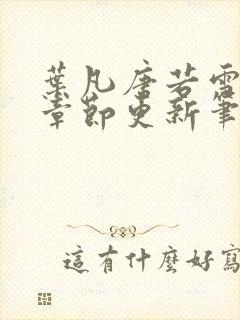 葉凡唐若雪
章節更新筆
這有什麼好寫